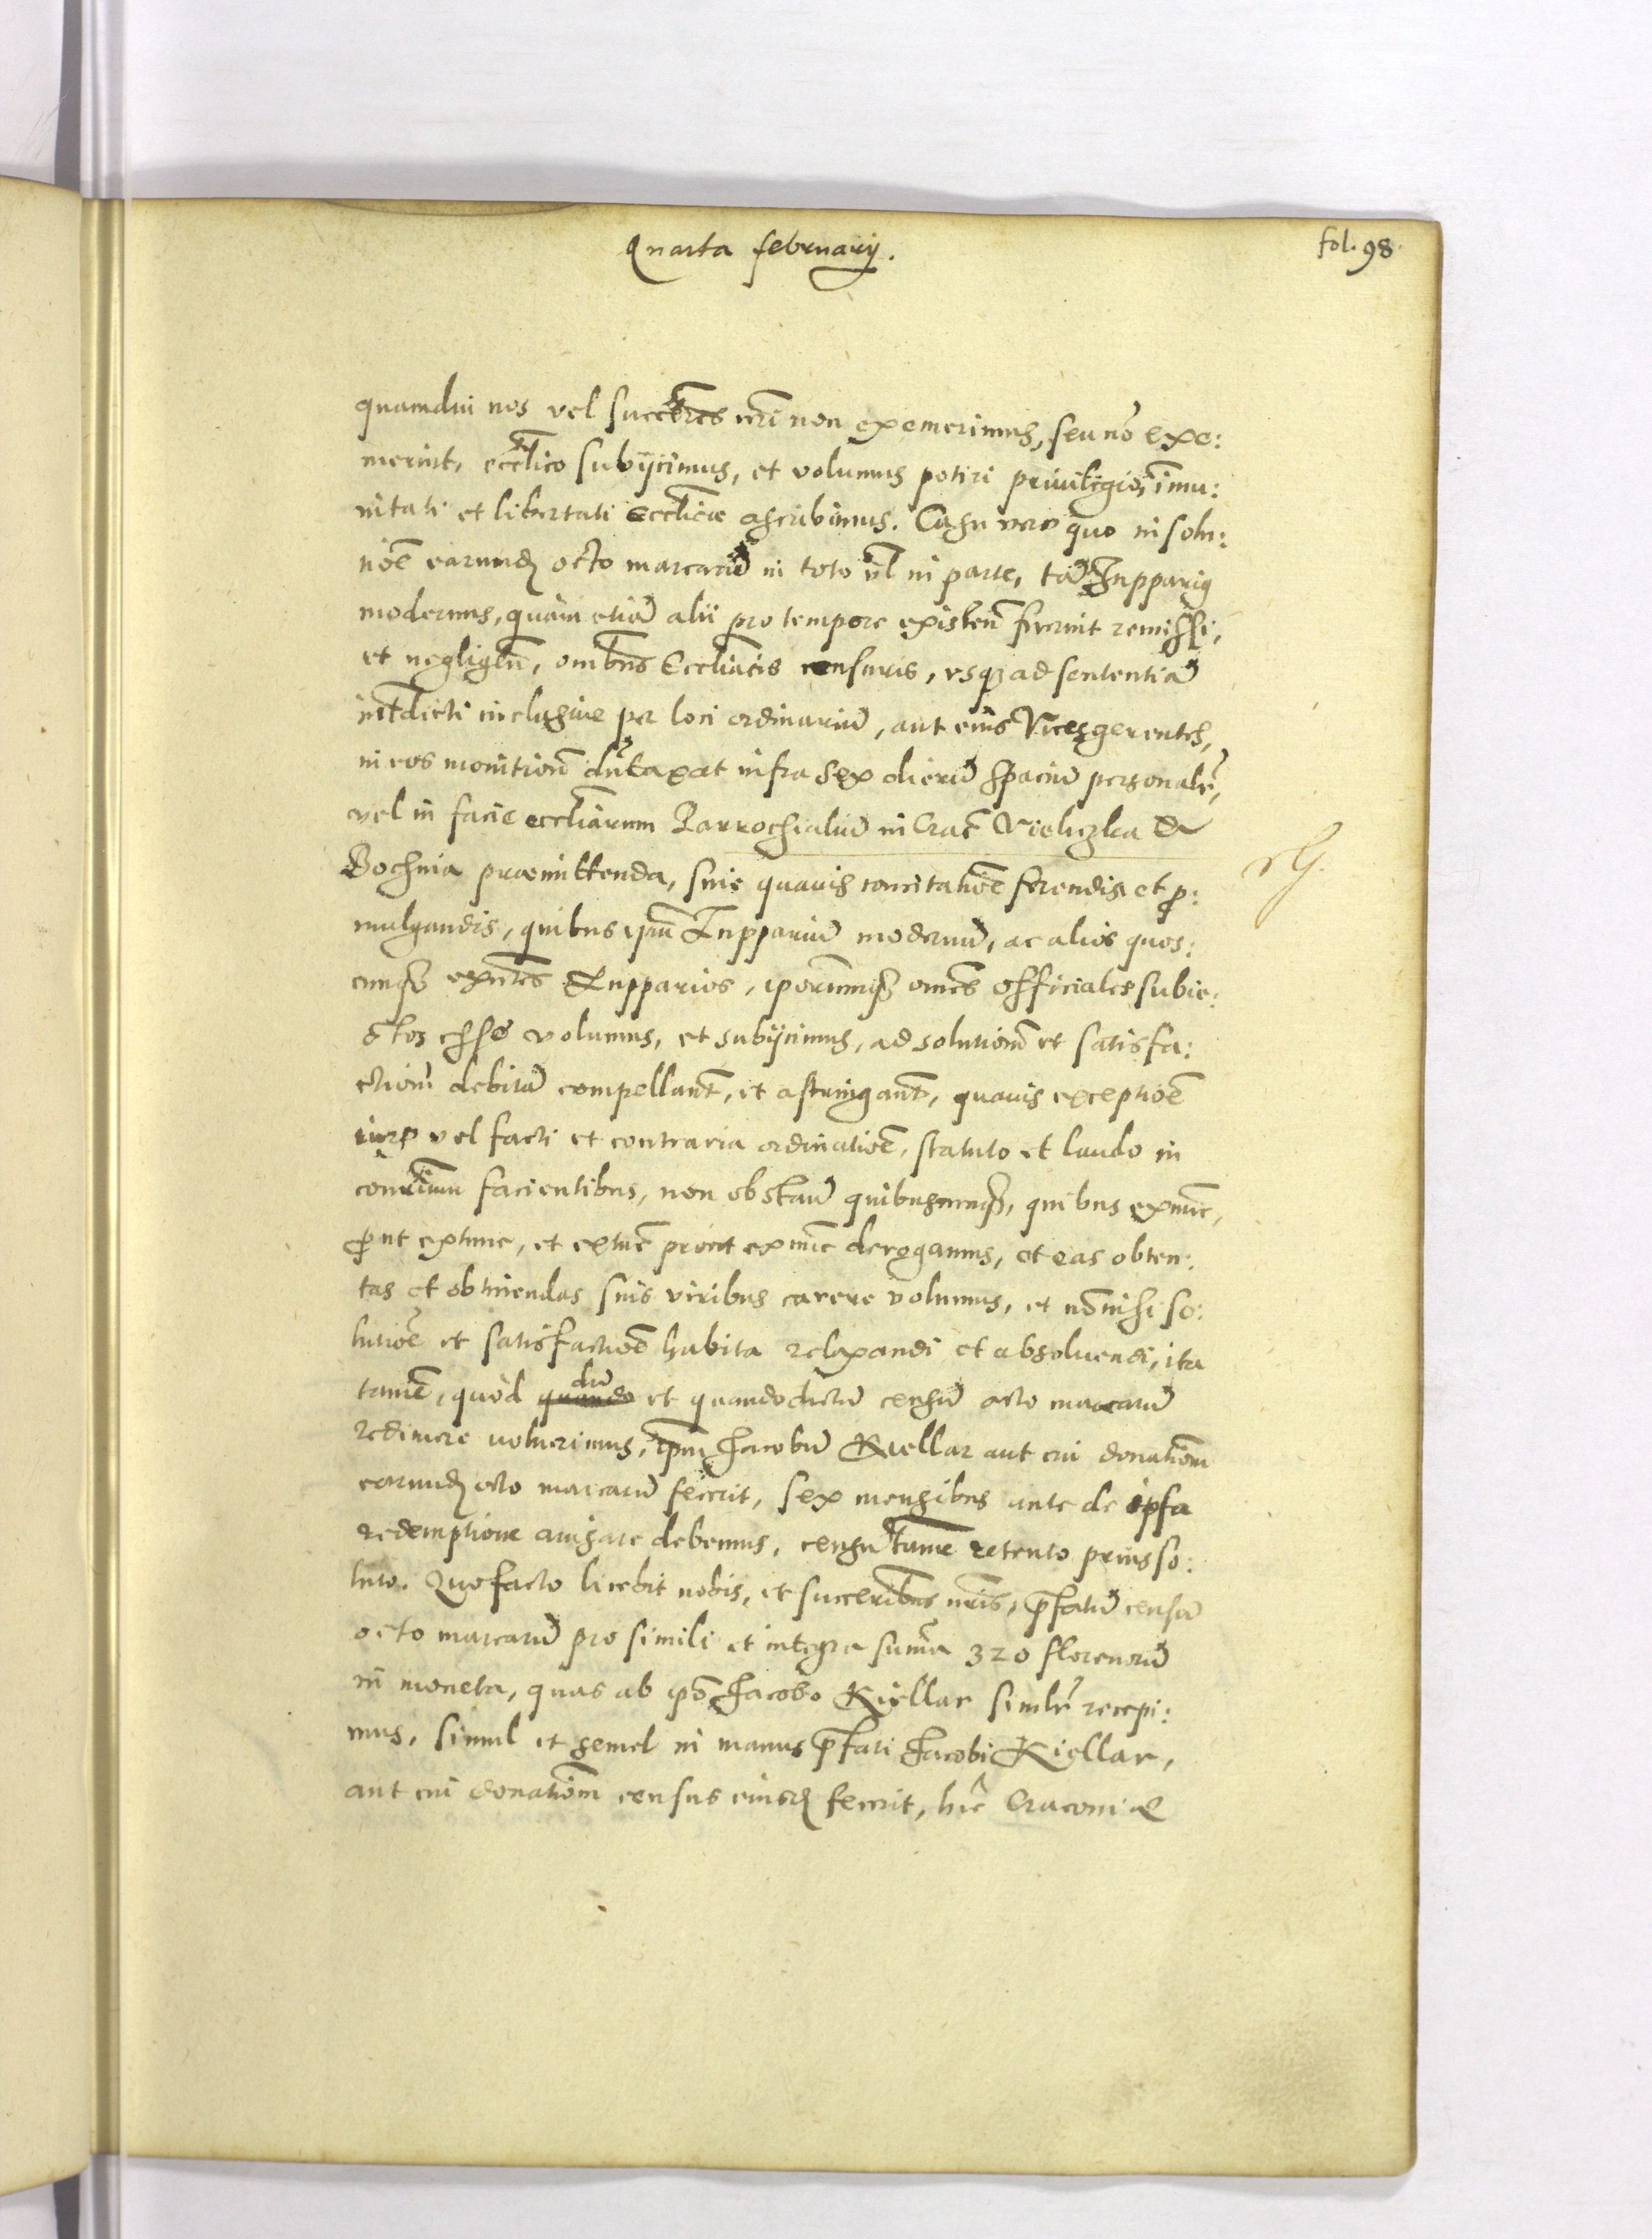 Quarta february.
fol. 98.
quamdiu nos vel succẽres nr̃i non exemerimus, seu nõ exe:
merint, eccl̃ico subijcimus, et volumus potiri priuilegio, im̃u:
nitati et libertati Eccl̃icæ asscribimus. Casu vero quo in solu:
nõe earundẽ octo marcarũ in toto vl̃ in parte, tã Zupparig
modernus, quàm etiã alii pro tempore existeñ fuerint remissi,
et negligeñ, om̃ibus Eccl̃iaĉis censuris, vsq̃ ad sententiã
int̃dicti inclusiue per loci ordinariũ, aut eius Vicesgerentes,
in eos monitioñ dũtaxat infra sex dierũ spaciũ personalr̃,
vel in facie eccl̃iarum Parrochialiũ in Crac̃ Vieliczka &
Bochnia præmittenda, siue quauis concitatiõe ferendis et ꝓ:
mulgandis, quibus ip̃m Zuppariũ modernũ, ac alios quos:
cunq̃ exñtes Zupparios, ip̃orumq̃ om̃es officiales subie:
ctos esse volumus, et subijcimus, ad solutiom̃ et satisfa:
ctiom̃ debitã compellant̃, et astringant̃, quauis exceptiõe
iurꝭ vel facti et contraria ordinatiõe, statuto et laudo in
contr̃ium facientibus, non obstañ quibuscunq̃, quibus exnũc,
ꝓut extunc, et extũc prout exnũc derogamus, et eas obten:
tas et obtinendas suis viribus carere volumus, et nõ nisi so:
lutiõe et satisfactiõe habita relaxandi et absoluendi, ita
tamẽ, quòd quando dũ et quando dictũ censũ octo marcarũ
redimere voluerimus, ip̃m Jacobũ Kiellar aut cui donatiom̃
earundẽ octo marcarũ fecerit, sex mensibus ante de ipsa
redemptione auisare debemus, censu tam̃e retento prius so:
luto. Quo facto licebit nobis, et succeribus nr̃is, p̃fatũ censũ
octo marcarũ pro simili et integra sum̃a 320 florenorũ
in moneta, quas ab ip̃o Jacobo Kiellar simlr̃ recepi:
mus, simul et semel in manus p̃fati Jacobi Kiellar,
aut cui donatiom̃ census eiusdẽ fecerit, hic̃ Cracouiæ